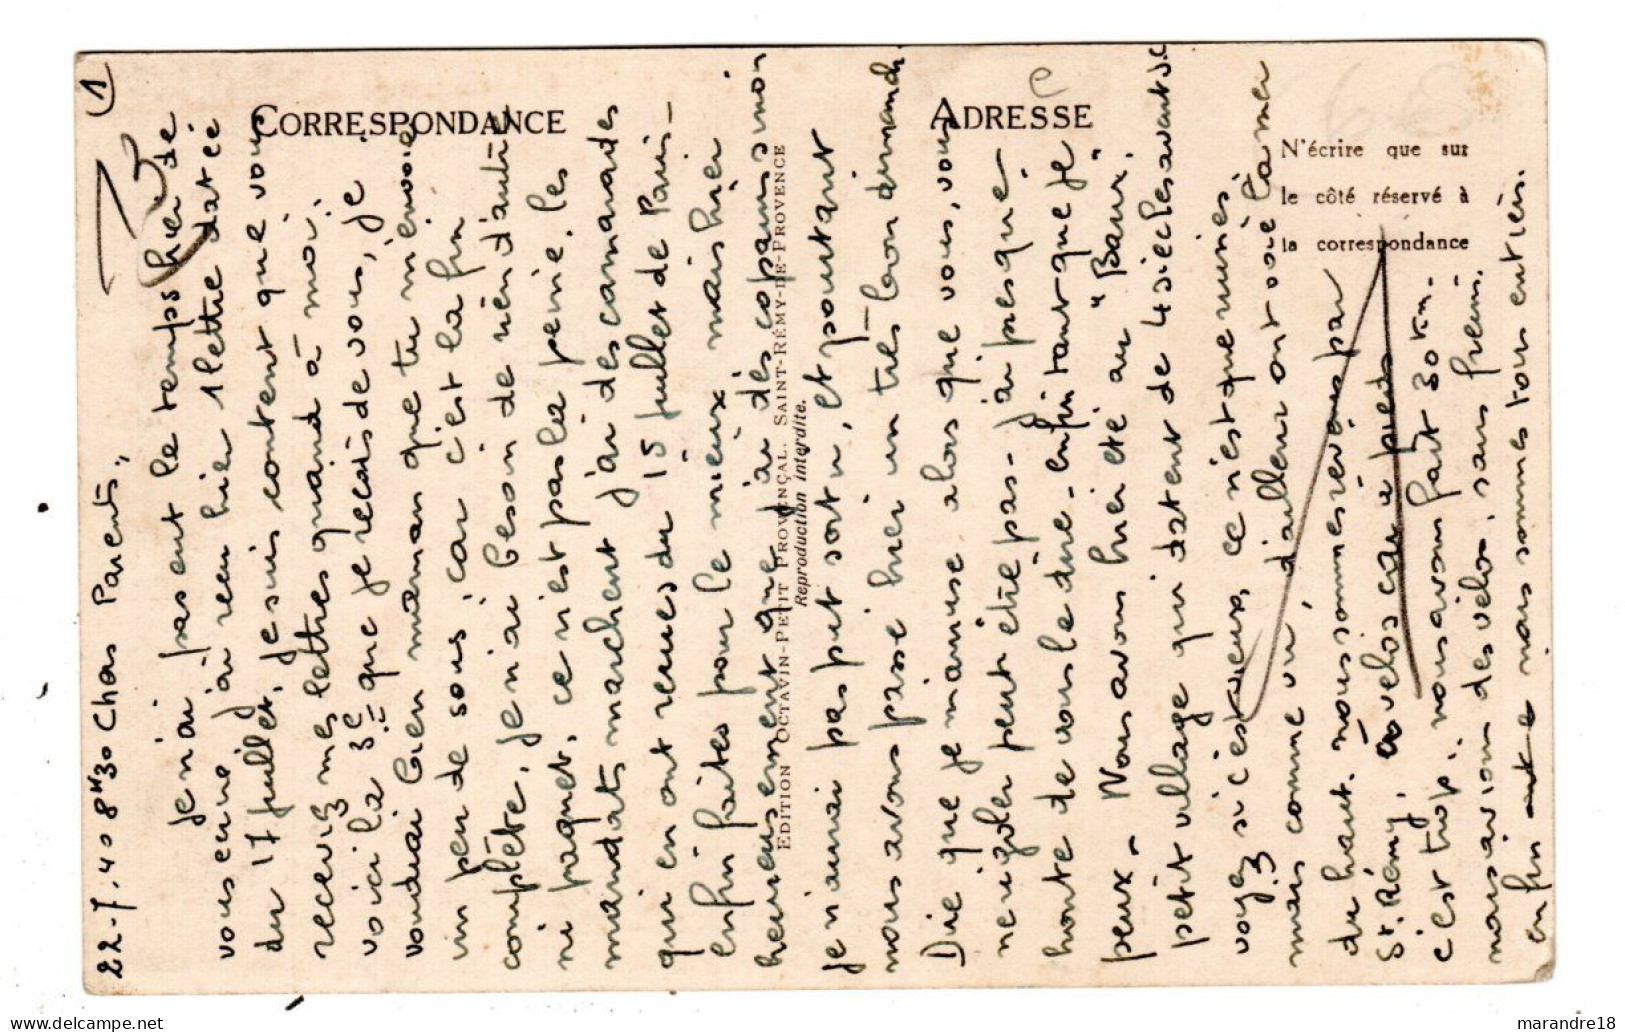 CORRESPONDANCE
ADRESSE
N'écrire que sur
le côté réservé à
la correspondance
EDITION OCTAVIN-PETIT PROVENÇAL. SAINT-RÉMY-DE-PROVENCE
Reproduction interdite.
1
22-7-40 8H30 Chers Parents,
je n'ai pas eut le temps hier de
vous écrire j'ai reçu hier 1 lettre datée
du 17 juillet, je suis content que vous
receviez mes lettres quand à moi,
voici la 3e que je reçois de vous, je
voudrai bien maman que tu m'envoie
un peu de sous, car c'est la fin
complète, je n'ai besoin de rien d'autre
ni paquet, ce n'est pas la peine, les
mandats marchent j'ai des camarades
qui en ont reçues du 15 juillet de Paris-
enfin faites pour le mieux mais hier
heureusement que j'ai des copains sinon
je n'aurai pas put sortir, et pourtant
nous avons passé hier un très bon dimanche
Dire que je m'amuse alors que vous, vous
ne rigolez peut être pas - j'ai presque
honte de vous le dire - enfin tant que je
peux - Nous avons hier été au "Baux".
petit village qui datent de 4 siècles avant J.C
voyez si c'est vieux, ce n'est que ruines
mais comme vu, d'ailleurs on voie la mer
du haut. nous sommes revenus par
St. Rémy, à vélos car à pieds
c'est trop. nous avons fait 30 km.
nous avions des vélos sans freins.
enfin nous sommes tous entiers.
marandre18